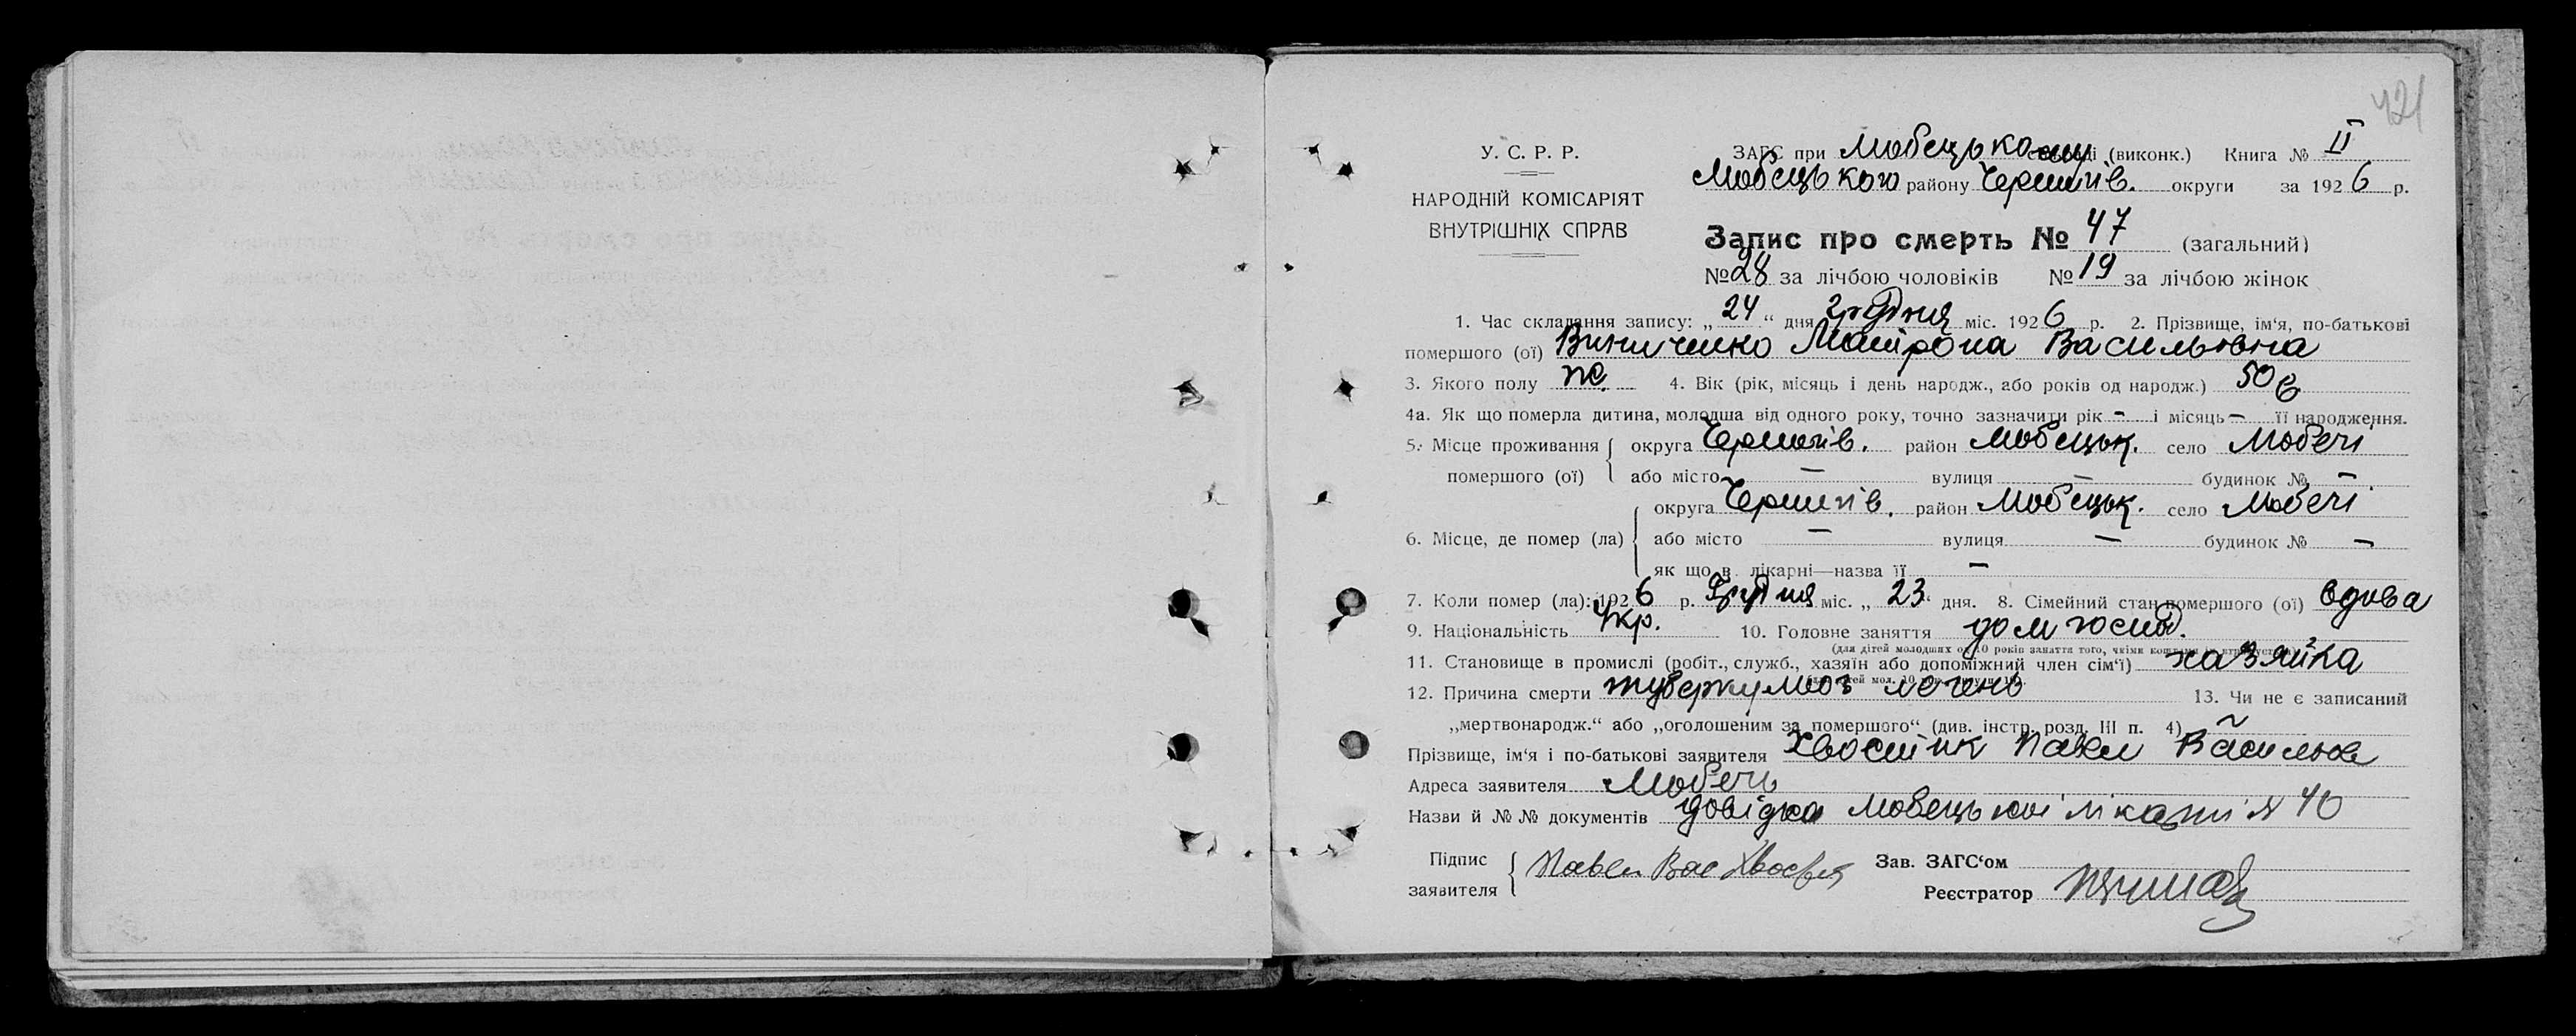 421
У. С. Р. Р.
НАРОДНІЙ КОМІСАРІЯТ
ВНУТРІШНІХ СПРАВ
ЗАГС при Любецькому раді (виконк.) Книга № II
Любецького району Чернигів. округи за 1926 р.
Запис про смерть № 47 (загальний)
№ 28 за лічбою чоловіків № 19 за лічбою жінок
1. Час складання запису: „24“ дня Грудня міс. 1926 р. 2. Прізвище, ім'я, по-батькові
помершого (ої) Винниченко Матрона Васильовна
3. Якого полу ж. 4. Вік (рік, місяць і день народж., або років од народж.) 50 р
4а. Як що померла дитина, молодша від одного року, точно зазначити рік – і місяць – її народження.
5. Місце проживання помершого (ої) округа Чернигів. район Любецьк. село Любечі
або місто – вулиця – будинок № –
6. Місце, де помер (ла) округа Чернигів. район Любецьк. село Любечі
або місто – вулиця – будинок № –
як що в лікарні—назва її –
7. Коли помер (ла): 1926 р. Грудня міс. „23“ дня. 8. Сімейний стан помершого (ої) вдова
9. Національність Укр. 10. Головне заняття дом господ.
(для дітей молодших од 10 років заняття того, чиїми коштами
11. Становище в промислі (робіт., служб., хазяїн або допоміжний член сім'ї) хазяйка
12. Причина смерти туберкульоз легень 13. Чи не є записаний
„мертвонародж.“ або „оголошеним за помершого“ (див. інстр. розд. III п. 4)
Прізвище, ім'я і по-батькові заявителя Хвостик Павел Васильов
Адреса заявителя Любечь
Назви й №№ документів довідка Любецької лікарні № 40
Підпис заявителя Павел Вас
Зав. ЗАГС'ом
Реєстратор